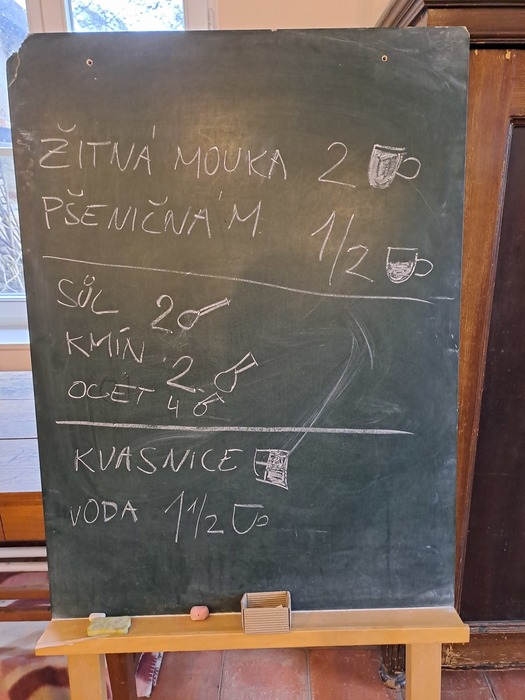 ŽITNÁ MOUKA 2
PŠENIČNÁ M. 1/2
SŮL 2
KMÍN 2
OCET 4
KVASNICE
VODA 1 1/2